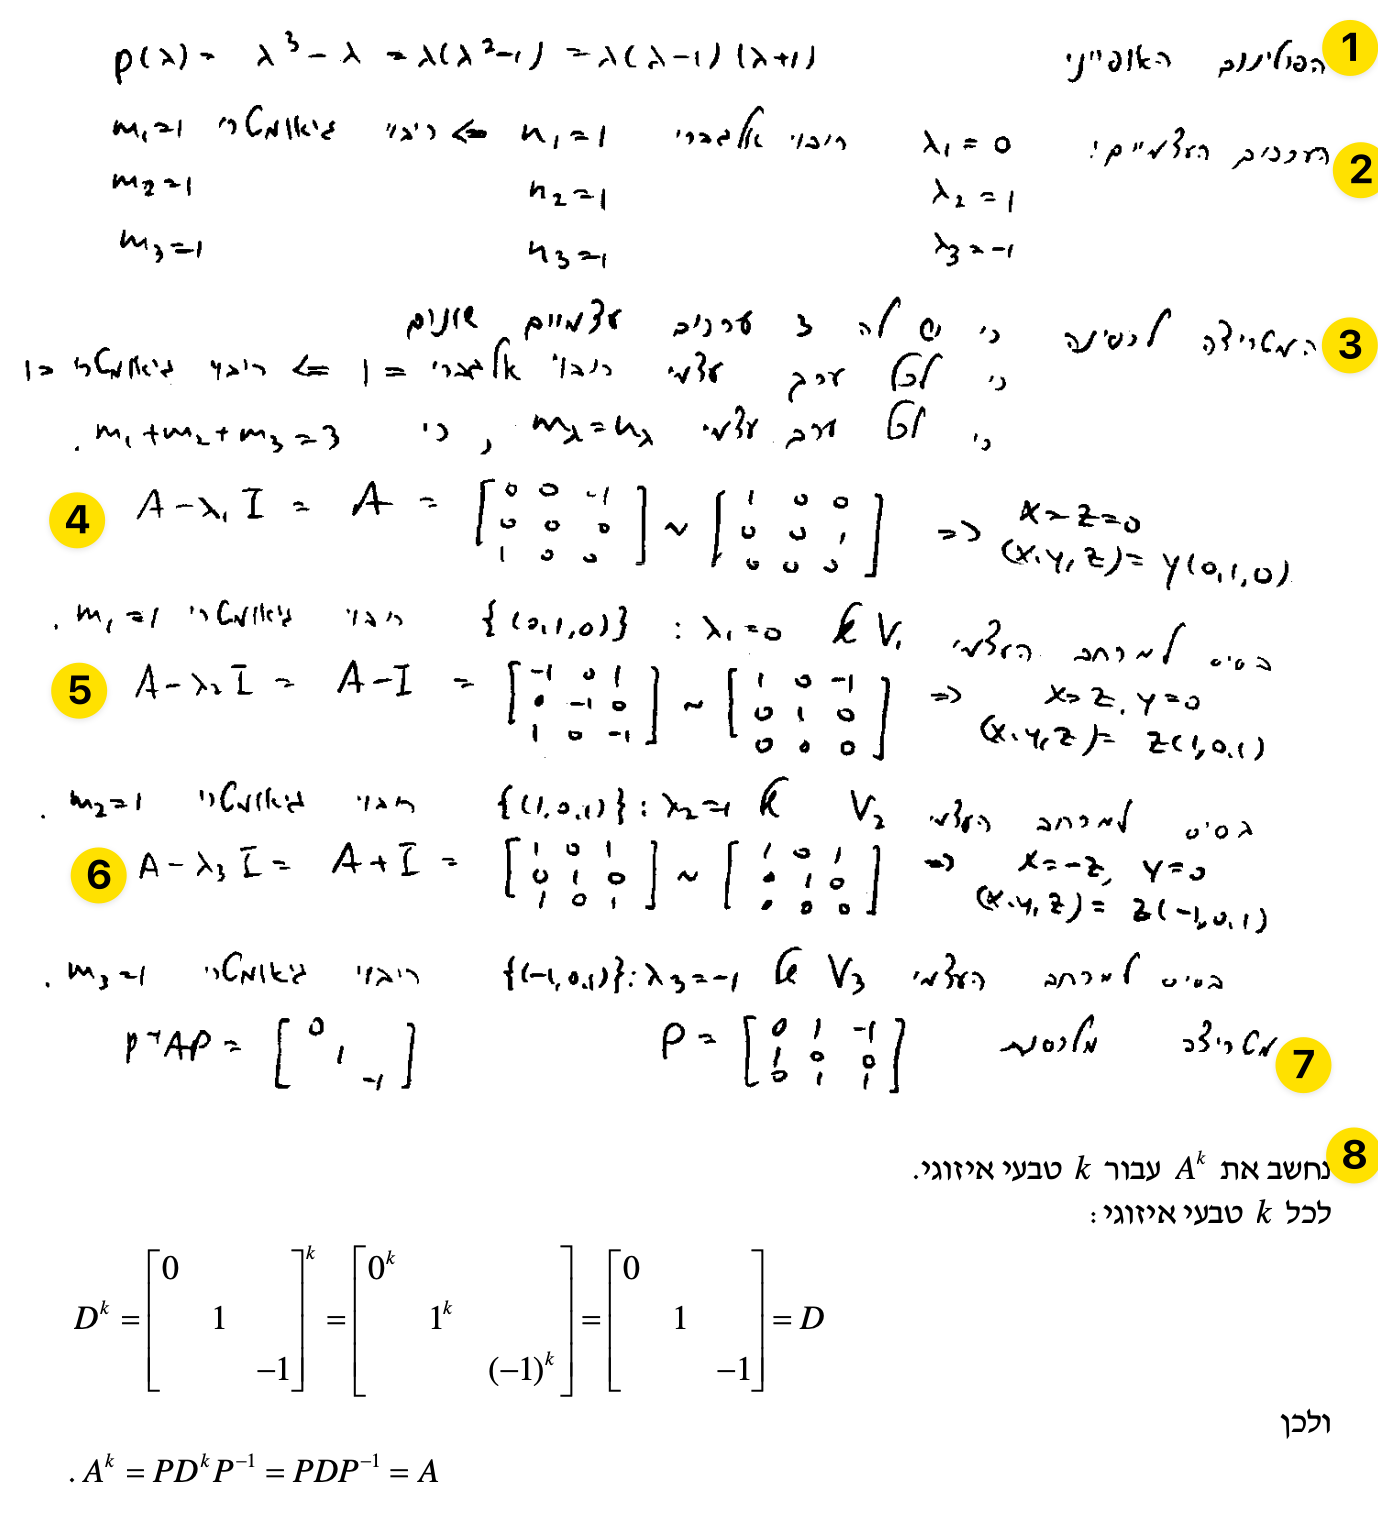 1 הפולינום האופייני p(λ) = λ³ − λ = λ(λ²−1) = λ(λ−1)(λ+1)
2 הערכים העצמיים: λ₁ = 0 ריבוי אלגברי n₁ = 1 ⇐ ריבוי גיאומטרי m₁ = 1
λ₂ = 1 n₂ = 1 m₂ = 1
λ₃ = −1 n₃ = 1 m₃ = 1
3 המטריצה לכסינה כי יש לה 3 ערכים עצמיים שונים
כי לכל ערך עצמי ריבוי אלגברי = 1 ⇐ ריבוי גיאומטרי = 1
כי לכל ערך עצמי m_λ = n_λ, כי m₁ + m₂ + m₃ = 3.
4 A − λ₁I = A = [0 0 −1; 0 0 0; 1 0 0] ~ [1 0 0; 0 0 1; 0 0 0] ⇒ x = z = 0
(x,y,z) = y(0,1,0)
בסיס למרחב העצמי V₁ של λ₁ = 0 : {(0,1,0)} ריבוי גיאומטרי m₁ = 1.
5 A − λ₂I = A − I = [−1 0 1; 0 −1 0; 1 0 −1] ~ [1 0 −1; 0 1 0; 0 0 0] ⇒ x = z, y = 0
(x,y,z) = z(1,0,1)
בסיס למרחב העצמי V₂ של λ₂ = 1 : {(1,0,1)} ריבוי גיאומטרי m₂ = 1.
6 A − λ₃I = A + I = [1 0 1; 0 1 0; 1 0 1] ~ [1 0 1; 0 1 0; 0 0 0] ⇒ x = −z, y = 0
(x,y,z) = z(−1,0,1)
בסיס למרחב העצמי V₃ של λ₃ = −1 : {(−1,0,1)} ריבוי גיאומטרי m₃ = 1.
7 מטריצה מלכסנת P = [0 1 −1; 1 0 0; 0 1 1] P⁻¹AP = [0 1 −1]
8 נחשב את Aᵏ עבור k טבעי איזוגי.
לכל k טבעי איזוגי:
Dᵏ = [0 1 −1]ᵏ = [0ᵏ 1ᵏ (−1)ᵏ] = [0 1 −1] = D
ולכן
Aᵏ = PDᵏP⁻¹ = PDP⁻¹ = A.